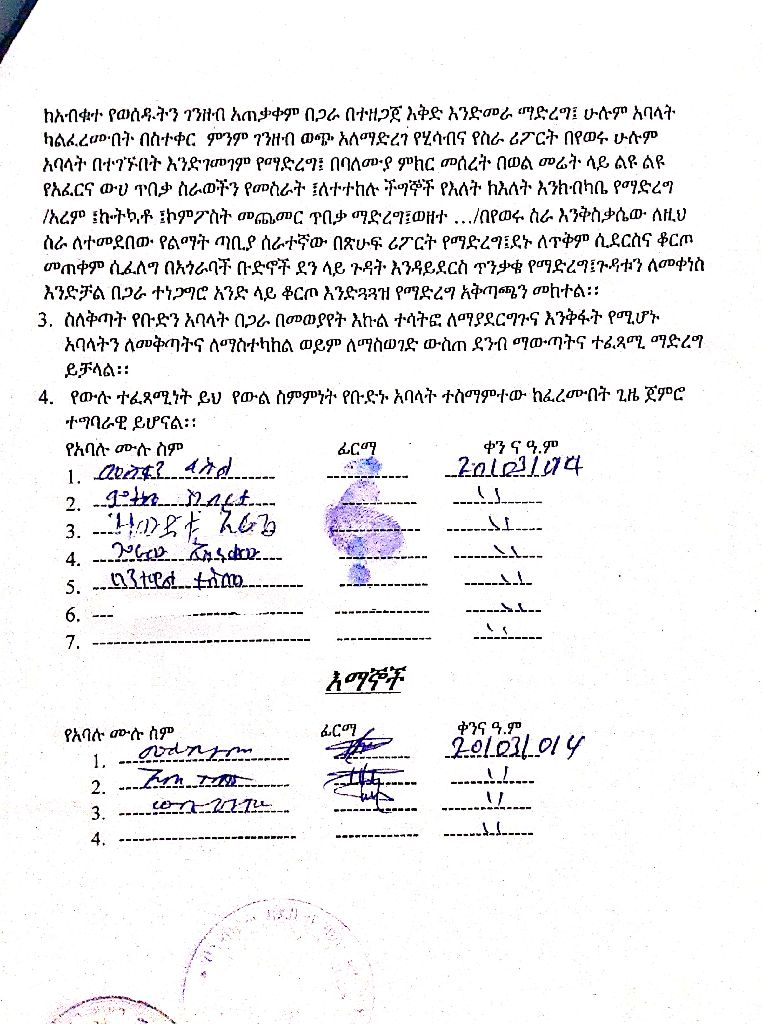 ከአብቁተ የወሰዱትን ገንዘብ አጠቃቀም በጋራ በተዘጋጀ እቅድ እንድመራ ማድረግ፤ ሁሉም አባላት
ካልፈረሙበት በስተቀር ምንም ገንዘብ ወጭ አለማድረግ የሂሳብና የስራ ሪፖርት በየወሩ ሁሉም
አባላት በተገኙበት እንድገመገም የማድረግ፤ በባለሙያ ምክር መሰረት በወል መሬት ላይ ልዩ ልዩ
የአፈርና ውሀ ጥበቃ ስራወችን የመስራት ፤ለተተከሉ ችግኞች የእለት ከእለት እንክብካቤ የማድረግ
/አረም ፤ኩትኳቶ ፤ኮምፖስት መጨመር ጥበቃ ማድረግ፤ወዘተ …/በየወሩ ስራ እንቅስቃሴው ለዚህ
ስራ ለተመደበው የልማት ጣቢያ ሰራተኛው በጽሁፍ ሪፖርት የማድረግ፤ደኑ ለጥቅም ሲደርስና ቆርጦ
መጠቀም ሲፈለግ በአጎራባች ቡድኖች ደን ላይ ጉዳት እንዳይደርስ ጥንቃቄ የማድረግ፤ጉዳቱን ለመቀነስ
እንድቻል በጋራ ተነጋግሮ አንድ ላይ ቆርጦ እንድጓጓዝ የማድረግ አቅጣጫን መከተል፡፡
3. ስለቅጣት የቡድን አባላት በጋራ በመወያየት እኩል ተሳትፎ ለማያደርግጉና እንቅፋት የሚሆኑ
አባላትን ለመቅጣትና ለማስተካከል ወይም ለማስወገድ ውስጠ ደንብ ማውጣትና ተፈጻሚ ማድረግ
ይቻላል፡፡
4. የውሉ ተፈጻሚነት ይህ የውል ስምምነት የቡድኑ አባላት ተስማምተው ከፈረሙበት ጊዜ ጀምሮ
ተግባራዊ ይሆናል፡፡
የአባሉ ሙሉ ስም ፊርማ ቀን ና ዓ.ም
1. 20/03/014
2. ‹‹
3. ‹‹
4. ‹‹
5. ‹‹
6. ‹‹
7. ‹‹
እማኞች
የአባሉ ሙሉ ስም ፊርማ ቀንና ዓ.ም
1. 20/03/014
2. ‹‹
3. ‹‹
4. ‹‹